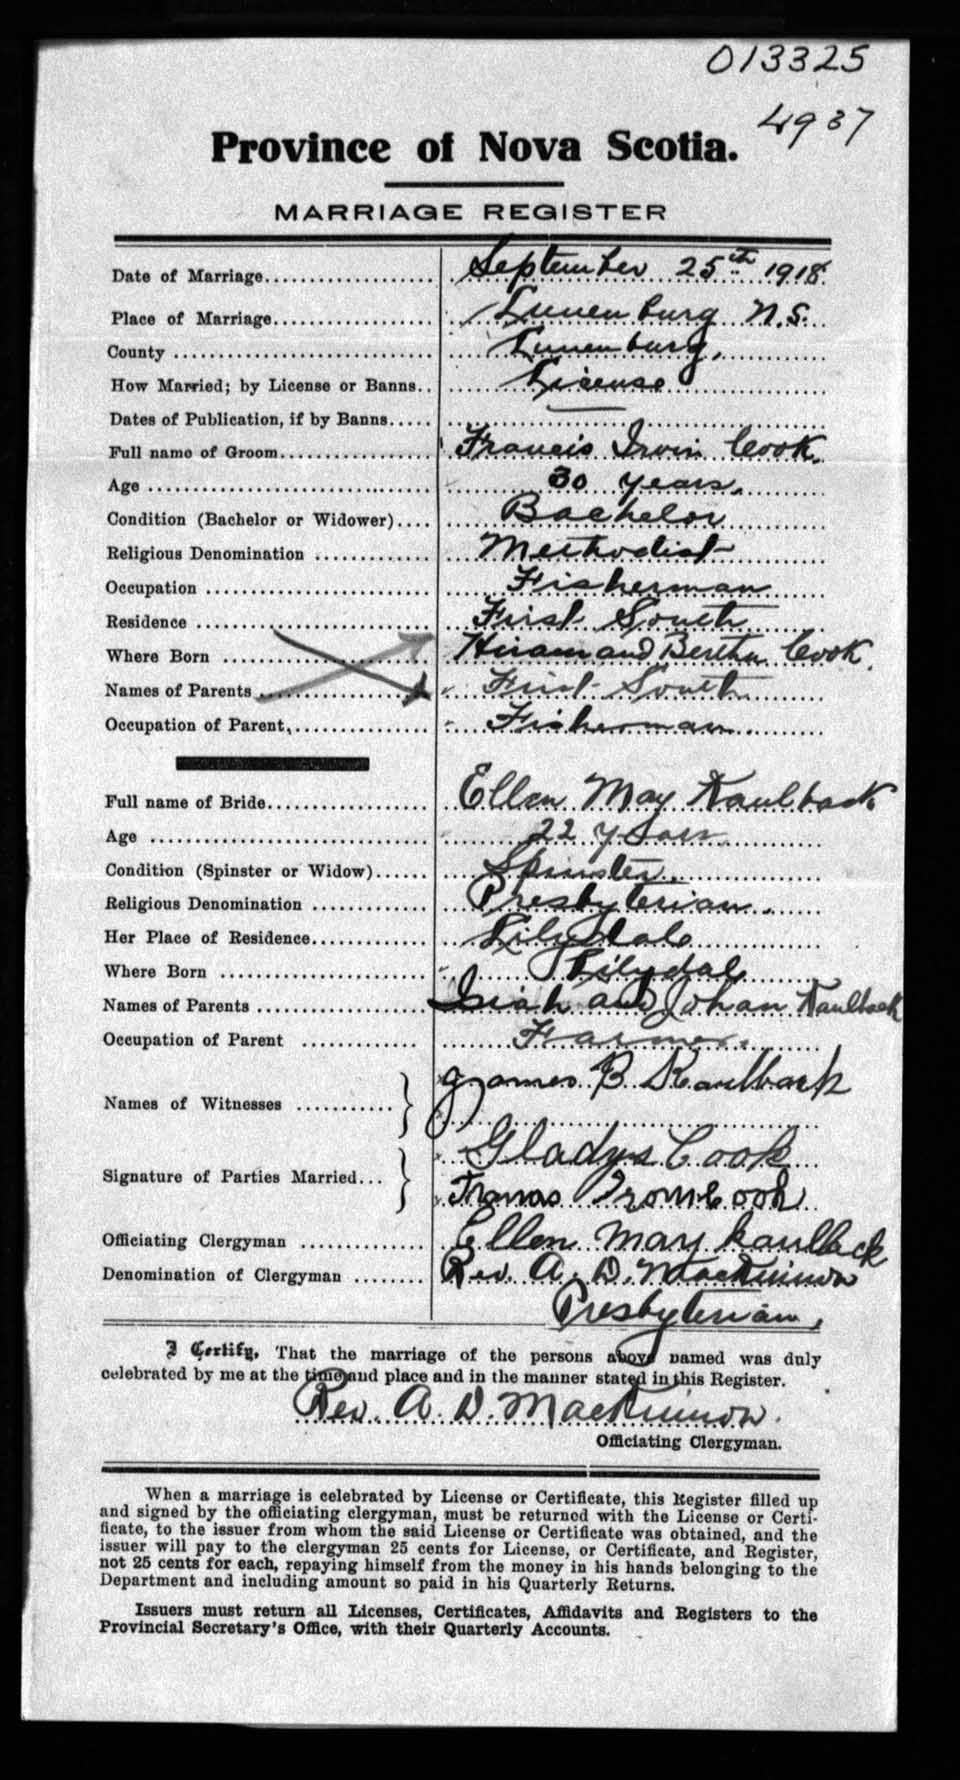 013325
4937
Province of Nova Scotia.
MARRIAGE REGISTER
Date of Marriage September 25th 1918
Place of Marriage Lunenburg N.S.
County Lunenburg,
How Married; by License or Banns License
Dates of Publication, if by Banns
Full name of Groom Francis Irvin Cook
Age 30 years,
Condition (Bachelor or Widower) Bachelor
Religious Denomination Methodist
Occupation Fisherman
Residence First South
Where Born Hiram and Bertha Cook.
Names of Parents First South
Occupation of Parent, Fisherman
Full name of Bride Ellen May Kaulback
Age 22 years
Condition (Spinster or Widow) Spinster
Religious Denomination Presbyterian.
Her Place of Residence Lilydale
Where Born Lilydale
Names of Parents Isiah and Johan Kaulback
Occupation of Parent Farmer.
Names of Witnesses James B Kaulback
Gladys Cook
Signature of Parties Married Cook
Officiating Clergyman Ellen May Kaulback
Denomination of Clergyman Rev. A. D. MacKinnon
Presbyterian,
I Certify, That the marriage of the persons above named was duly
celebrated by me at the time and place and in the manner stated in this Register.
Rev. A. D. MacKinnon.
Officiating Clergyman.
When a marriage is celebrated by License or Certificate, this Register filled up
and signed by the officiating clergyman, must be returned with the License or Certi-
ficate, to the issuer from whom the said License or Certificate was obtained, and the
issuer will pay to the clergyman 25 cents for License, or Certificate, and Register,
not 25 cents for each, repaying himself from the money in his hands belonging to the
Department and including amount so paid in his Quarterly Returns.
Issuers must return all Licenses, Certificates, Affidavits and Registers to the
Provincial Secretary's Office, with their Quarterly Accounts.